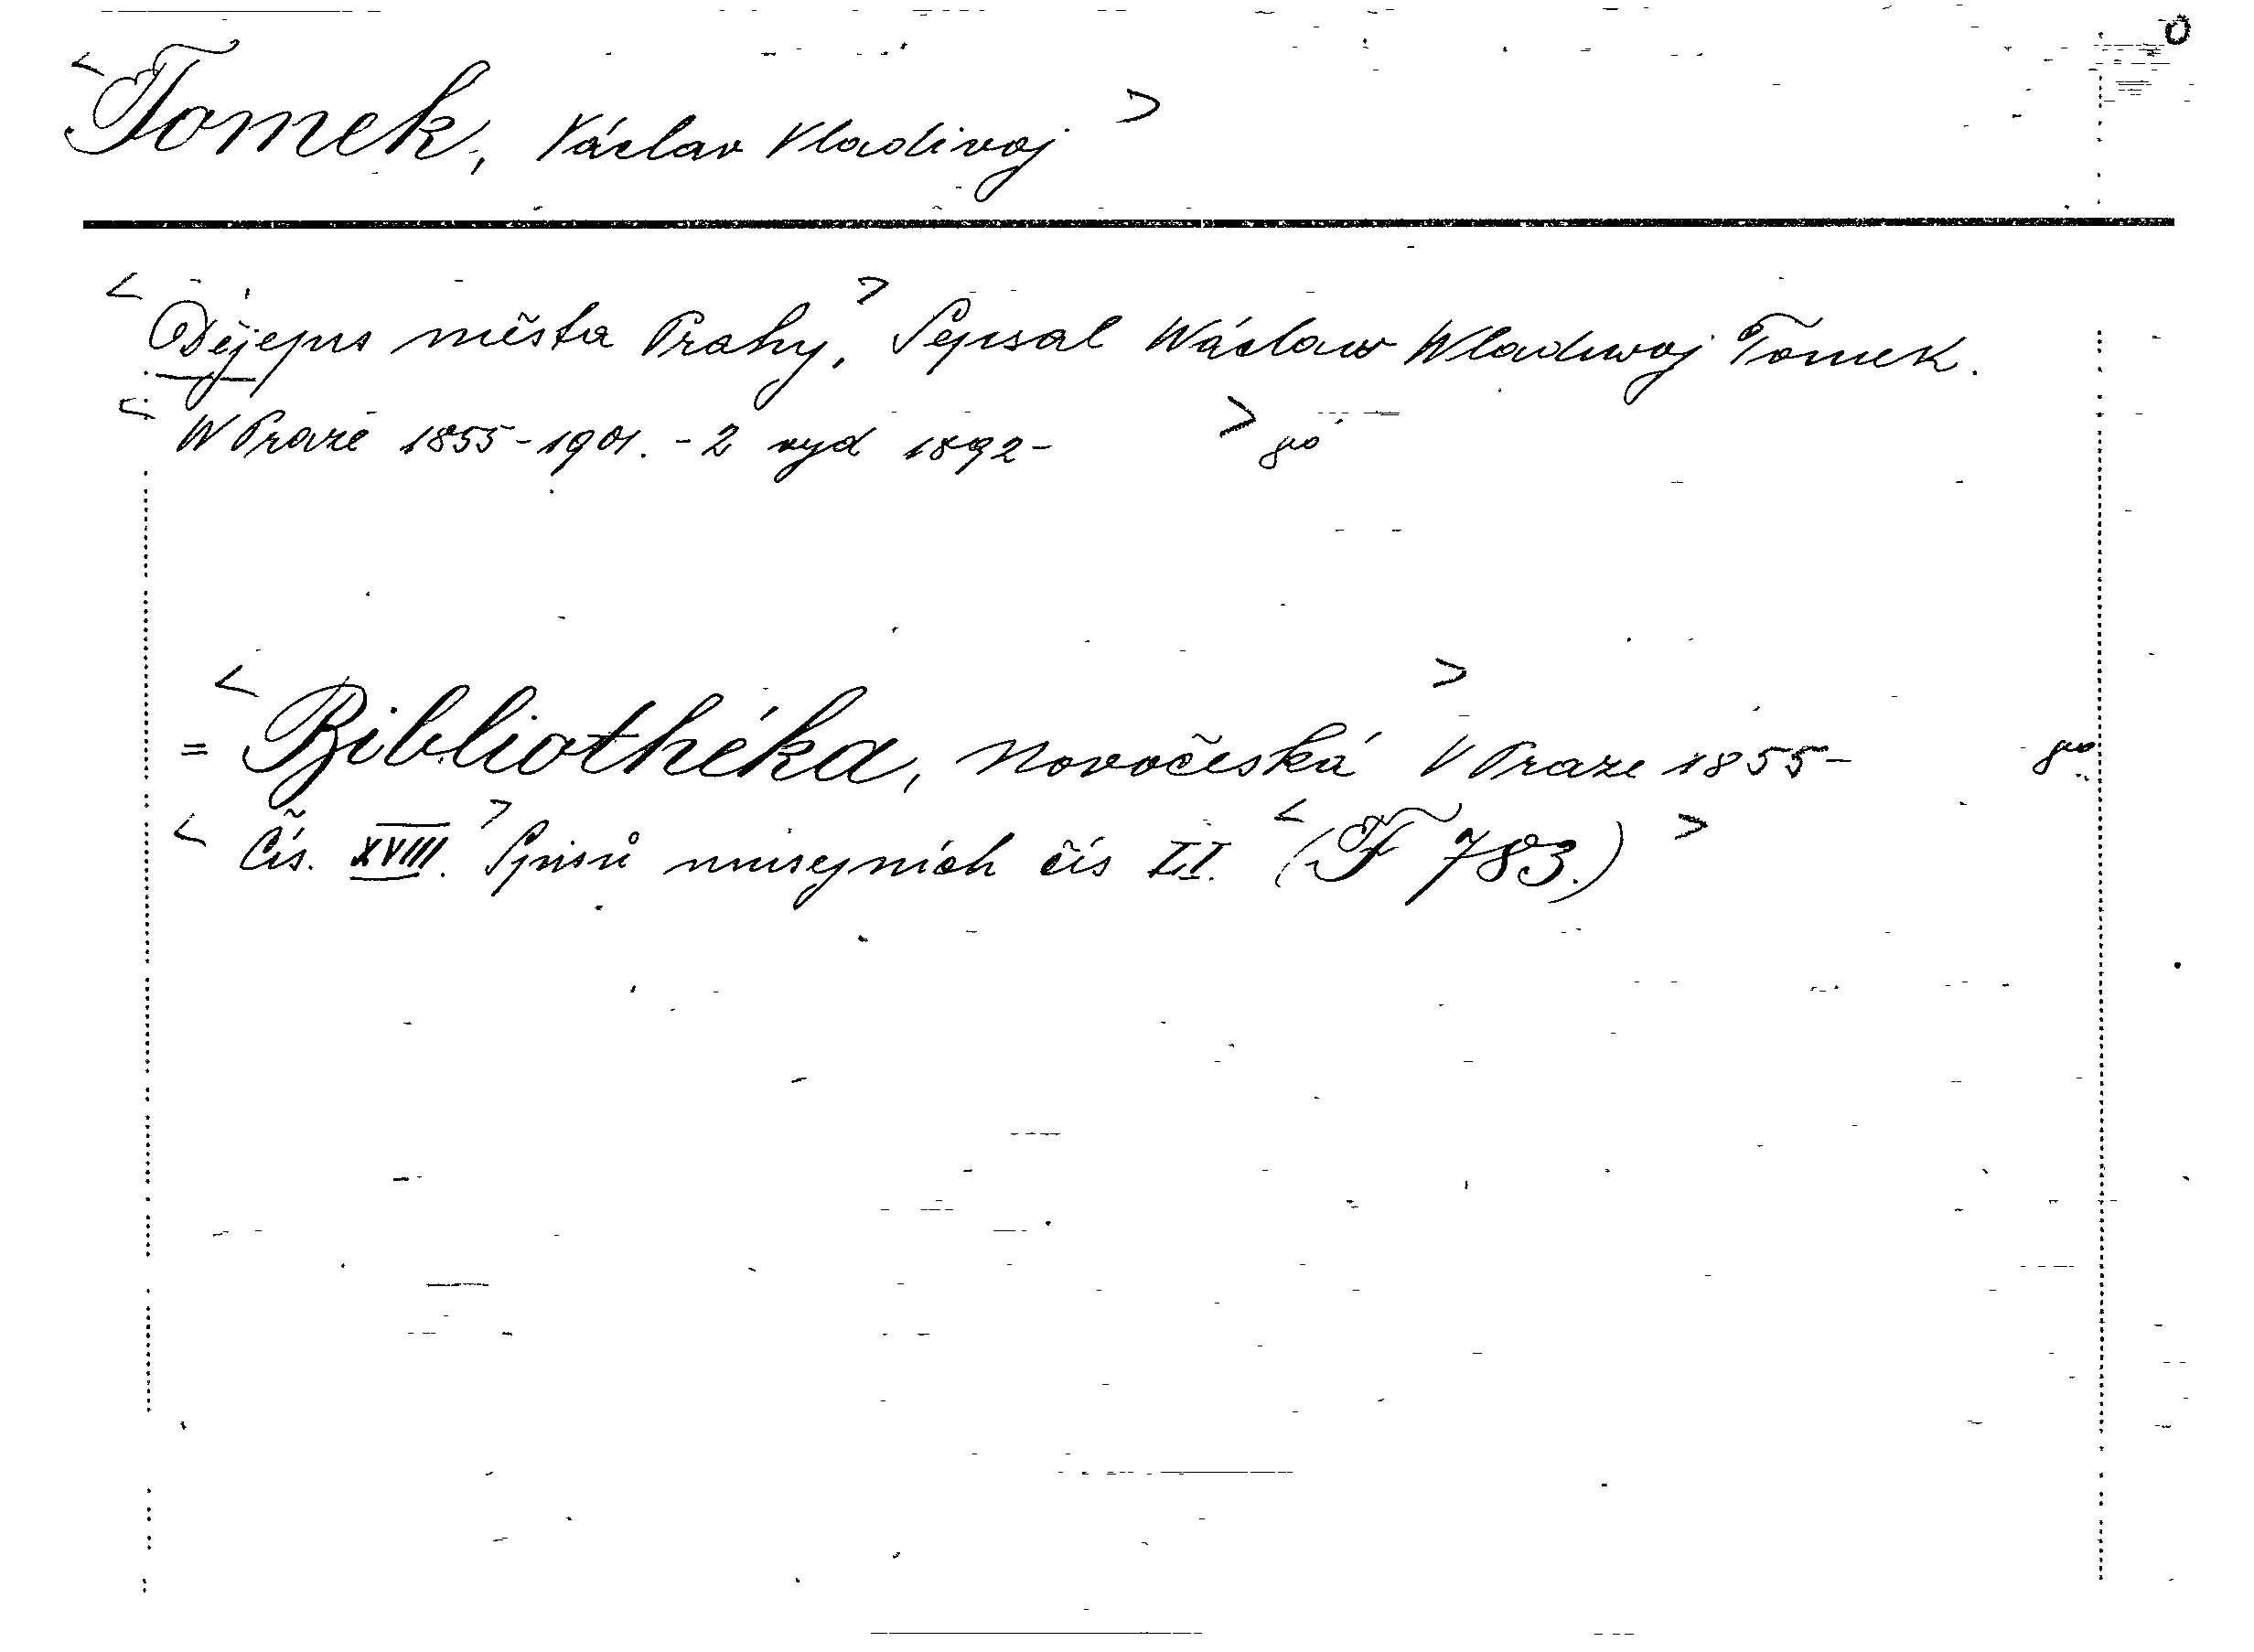 <Tomek, Václav Vladivoj>
<Dějepis města Prahy.> Sepsal Wáclaw Wladiwoj Tomek.
<W Praze 1855-1901. - 2 vyd 1892- > 8°
= <Bibliothéka, novočeská> V Praze 1855- 8°
<Čís. XVIII.> Spisů musejních čís LI. <(F 783.)>